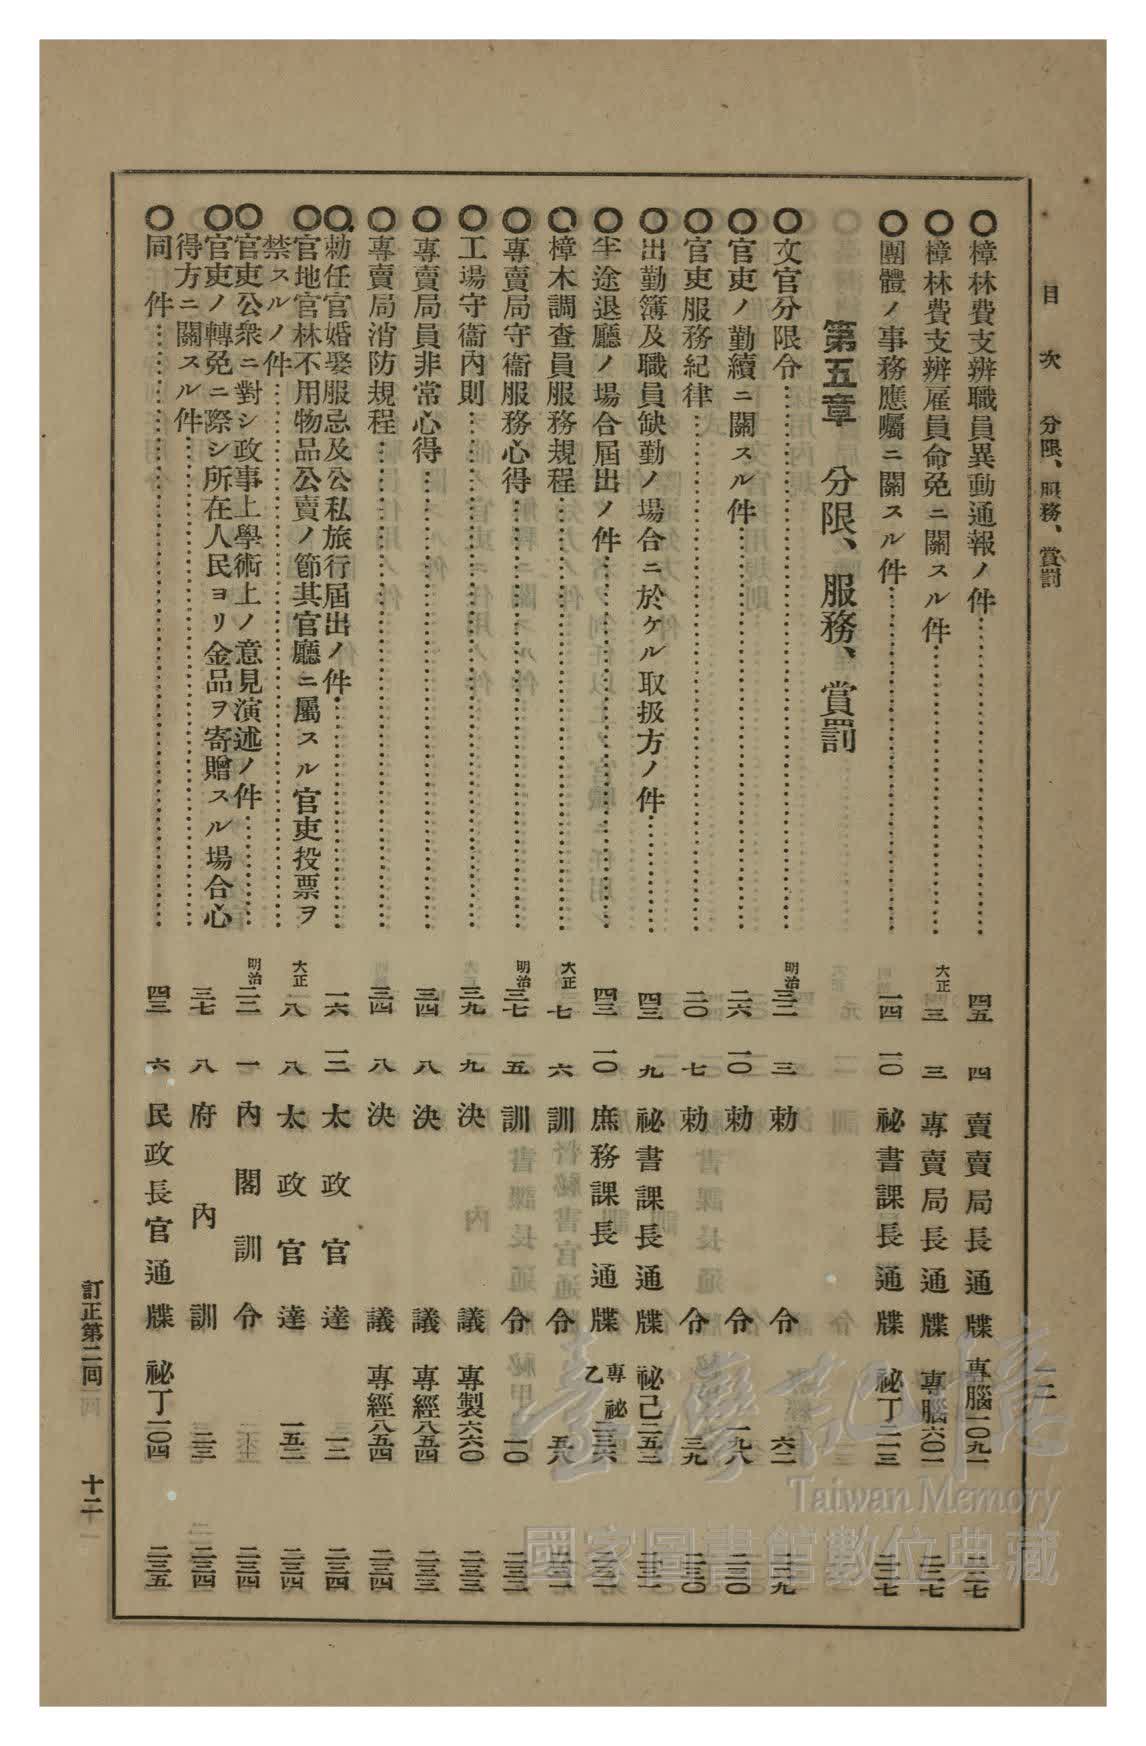 目次 分限、服務、賞罰
一二
◯樟林費支辨職員異動通報ノ件 四五 四 賣賣局長通牒 專腦一〇九一 二二七
◯樟林費支辨雇員命免ニ關スル件 大正四三 三 專賣局長通牒 專腦六〇一 二二七
◯團體ノ事務應囑ニ關スル件 一四 一〇 祕書課長通牒 祕丁二一三 二二七
第五章 分限、服務、賞罰
◯文官分限令 明治三二 三 勅令 六二 二二九
◯官吏ノ勤續ニ關スル件 二六 一〇 勅令 一九八 二三〇
◯官吏服務紀律 二〇 七 勅令 三九 二三〇
◯出勤簿及職員缺勤ノ場合ニ於ケル取扱方ノ件 四三 九 祕書課長通牒 祕己二五三 二三一
◯半途退廳ノ場合屆出ノ件 四三 一〇 庶務課長通牒 專祕乙二三六 二三一
◯樟木調查員服務規程 大正七 六 訓令 五八 二三一
◯專賣局守衞服務心得 明治三七 五 訓令 一〇 二三二
◯工場守衞內則 三九 九 決議 專製六六〇 二三三
◯專賣局員非常心得 三四 八 決議 專經八五四 二三三
◯專賣局消防規程 三四 八 決議 專經八五四 二三四
◯勅任官婚娶服忌及公私旅行屆出ノ件 一六 一二 太政官達 一二 二三四
◯官地官林不用物品公賣ノ節其官廳ニ屬スル官吏投票ヲ
禁スルノ件 大正一八 八 太政官達 一五二 二三四
◯官吏公衆ニ對シ政事上學術上ノ意見演述ノ件 明治二二 一 內閣訓令 二三四
◯官吏ノ轉免ニ際シ所在人民ヨリ金品ヲ寄贈スル場合心
得方ニ關スル件 三七 八 府內訓 二三 二三四
◯同件 四三 六 民政長官通牒 祕丁一〇四 二三五
訂正第二回 十二
臺灣記憶
Taiwan Memory
國家圖書館數位典藏